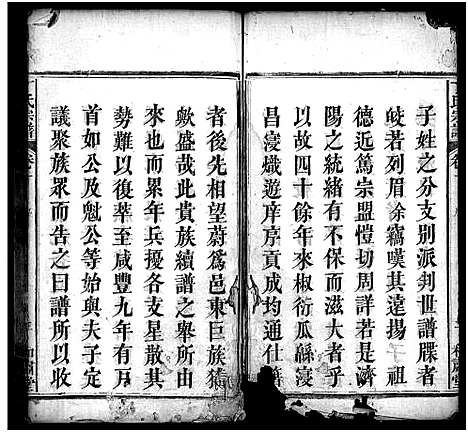 子姓之分支別派判世譜牒者
皎若列眉余竊嘆其遠揚 祖
德近篤宗盟愷切周詳若是濟
陽之統緒有開而滋大者乎
以故四十餘年來椒衍瓜緜寖
昌寖熾遊庠序貢成均通仕籍
者後先相望蔚為邑東巨族猗
歟盛哉此貴族續譜之舉所由
來也而累年兵擾各支星散其
勢難以復萃至咸豐九年有房
首如公及魁公等始與夫子定
議聚族眾而告之曰譜所以收
氏宗譜